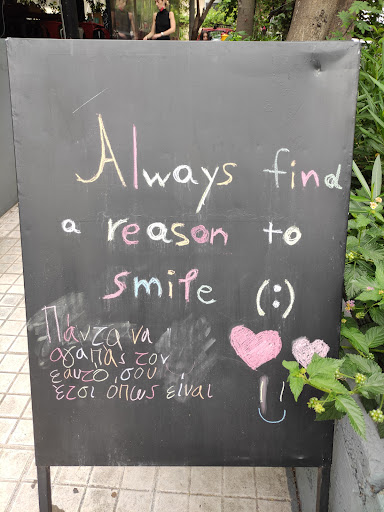 Always find
a reason to
smile (:)
Πάντα να
αγαπάς τον
εαυτό σου
έτσι όπως είναι